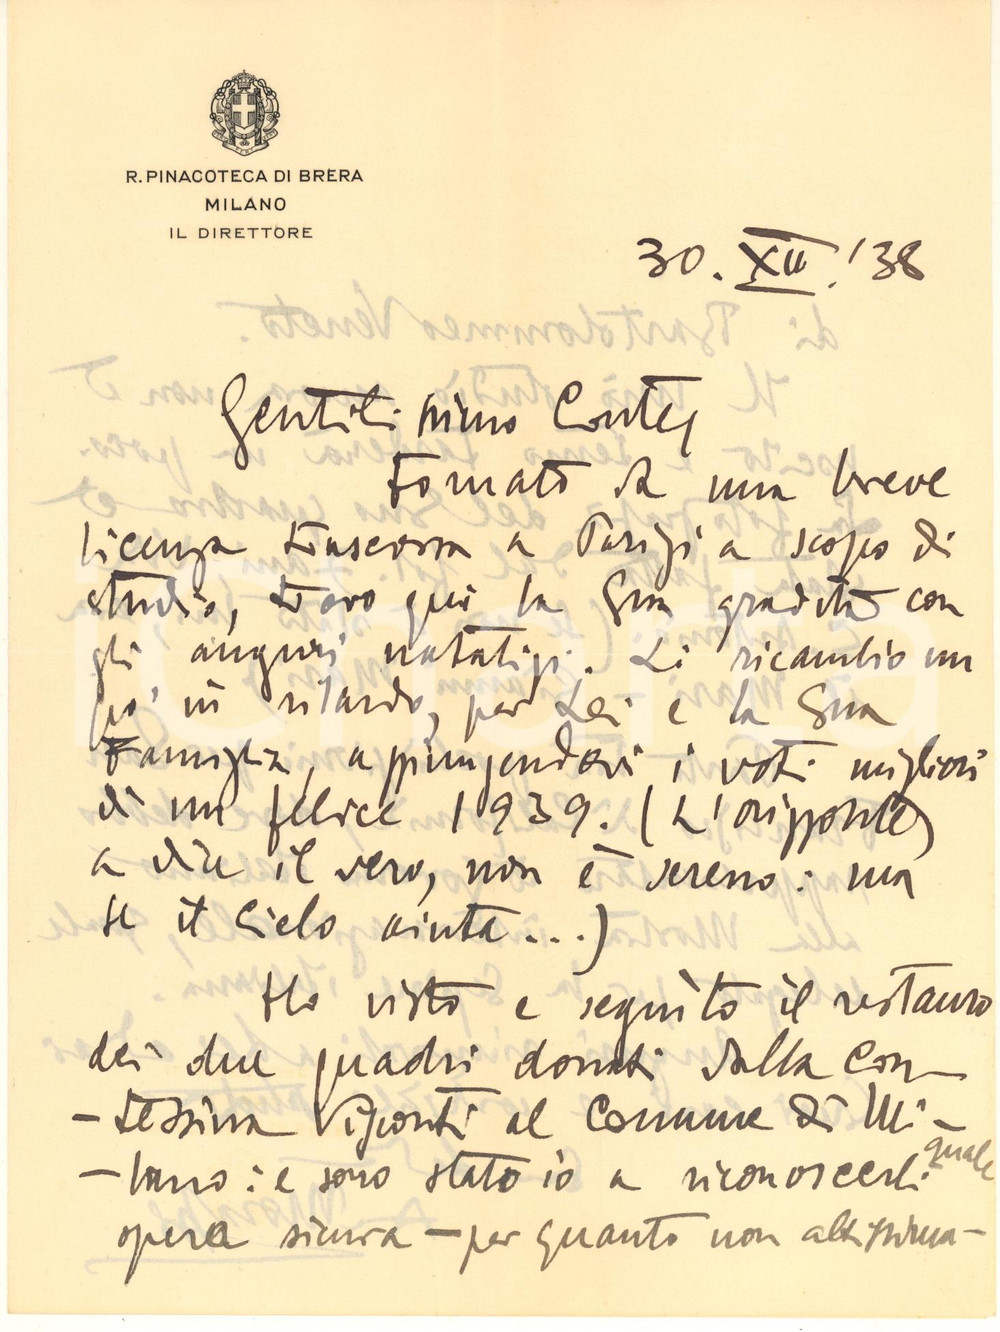 R. PINACOTECA DI BRERA
MILANO
IL DIRETTORE
30. XII. '38
Gentilissimo Conte,
Tornato da una breve
licenza trascorsa a Parigi a scopo di
studio, trovo qui la Sua gradita con
gli auguri natalizi. Li ricambio un
po' in ritardo, per Lei e la Sua
Famiglia, aggiungendovi i voti migliori
di un felice 1939. (L'orizzonte,
a dire il vero, non è sereno: ma
se il Cielo aiuta...)
Ho visto e seguito il restauro
dei due quadri donati dalla Con-
-tessina Visconti al Comune di Mi-
-lano: e sono stato io a riconoscerli quale
opera sicura - per quanto non altissima -